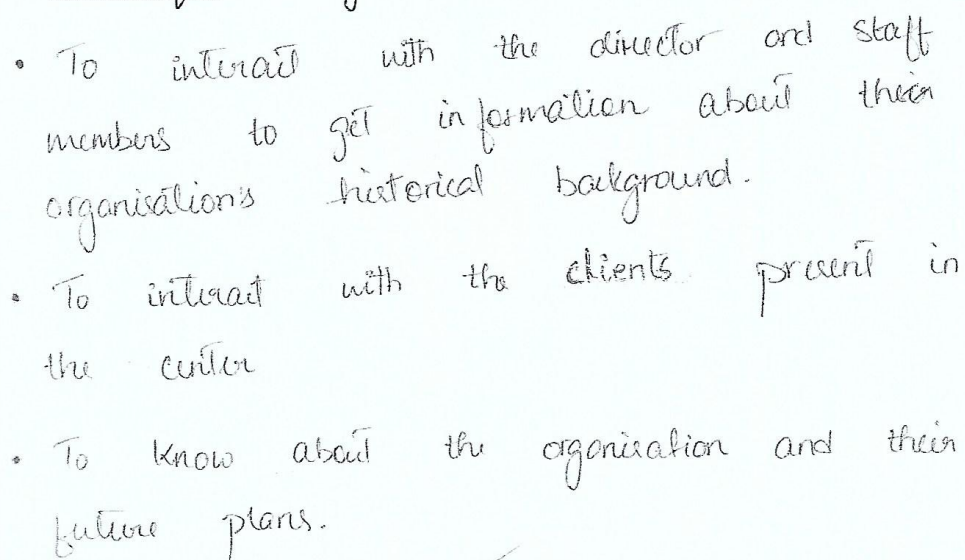 • To interact with the director and staff
members to get information about their
organisation's historical background.
• To interact with the clients present in
the center
• To know about the organisation and their
future plans.